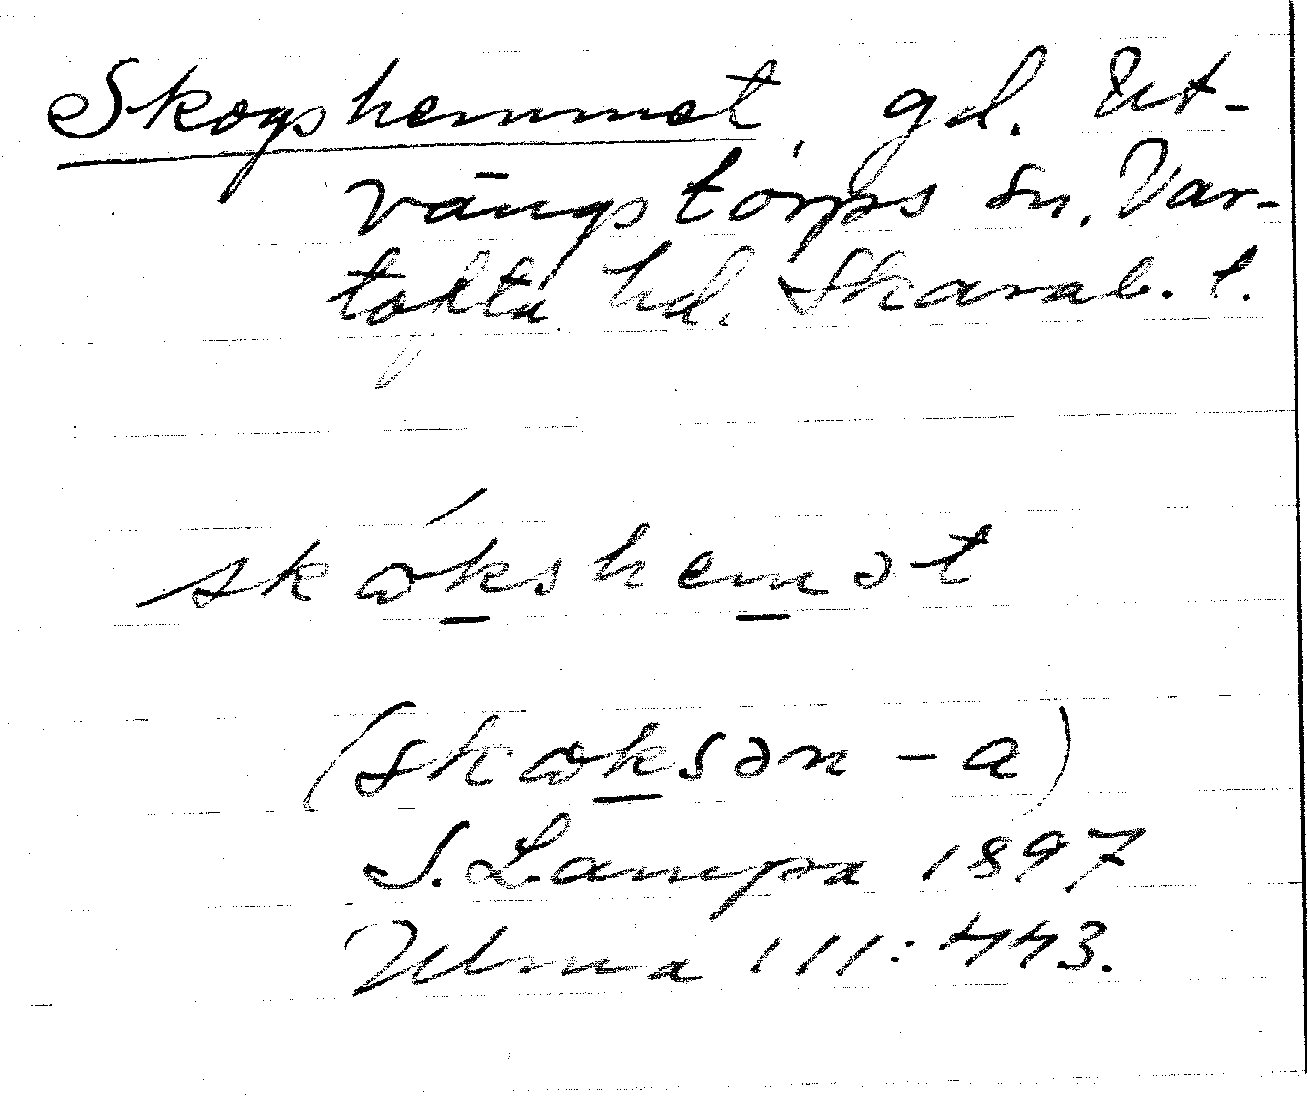 Skogshemmet, gd. Ut-
vängstorps sn, Var-
tofta hd. Skarab. l.
skåkshemət
(skåksən -a)
S. Lampa 1897
Ulma 111:443.